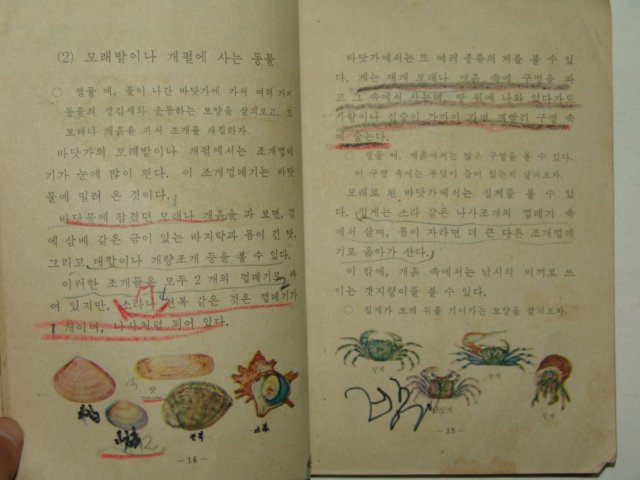 (2) 모래밭이나 개펄에 사는 동물
○ 썰물 때, 물이 나간 바닷가에 가서 여러 가지
동물의 생김새와 운동하는 모양을 살펴보고, 또
모래나 개흙을 파서 조개를 채집하자.
바닷가의 모래밭이나 개펄에서는 조개껍데
기가 눈에 많이 띈다. 이 조개껍데기는 바닷
물에 밀려 온 것이다.
바닷물에 잠겼던 모래나 개흙을 파 보면, 겉
에 삼베 같은 금이 있는 바지락과 몸이 긴 맛,
그리고 대합이나 개량조개 등을 볼 수 있다.
이러한 조개들은 모두 2 개의 껍데기로 싸
여 있지만, 소라나 전복 같은 것은 껍데기가
1 개이며, 나사처럼 되어 있다.
맛
전복
소라
- 14 -
바닷가에서는 또 여러 종류의 게를 볼 수 있
다. 게는 대개 모래나 개흙 속에 구멍을 파
고 그 속에서 사는데, 땅 위에 나와 있다가도
사람이나 짐승이 가까이 가면 재빨리 구멍 속
에 숨는다.
○ 썰물 때, 개흙에서는 많은 구멍을 볼 수 있다.
이 구멍 속에는 무엇이 들어 있는지 살펴보자.
모래로 된 바닷가에서는 집게를 볼 수 있
다. 집게는 소라 같은 나사조개의 껍데기 속
에서 살며, 몸이 자라면 더 큰 다른 조개껍데
기로 옮아가 산다.
이 밖에, 개흙 속에서는 낚시의 미끼로 쓰
이는 갯지렁이를 볼 수 있다.
○ 집게가 모래 위를 기어가는 모양을 살펴보자.
집게
- 15 -